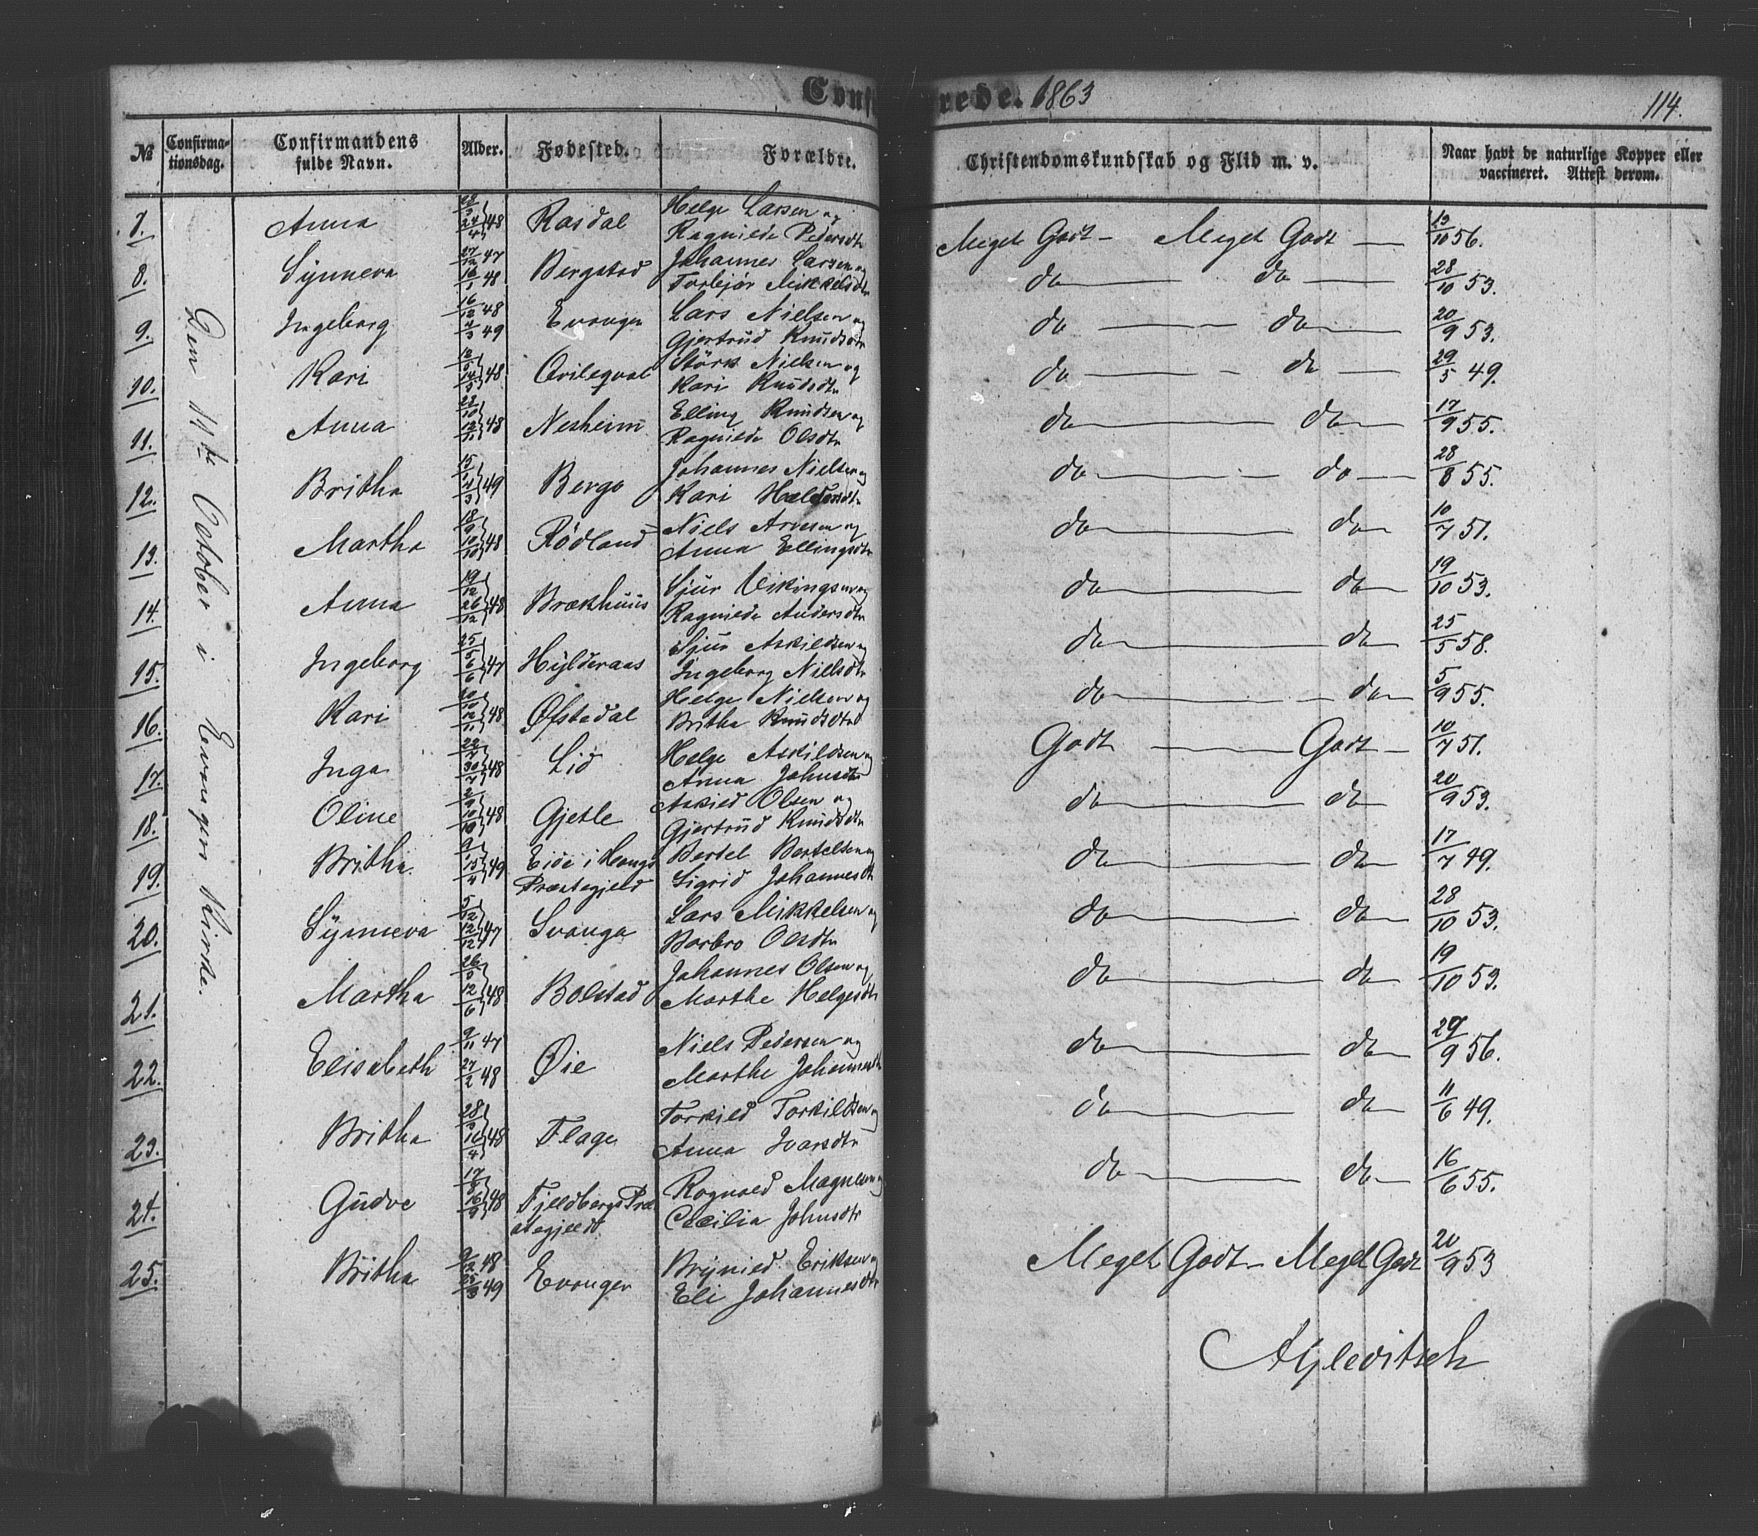 Confirmerede. 1863
114.
№ Confirmationsdag. Confirmandens fulde Navn. Alder. Fødested. Forældre. Christendomskundskab og Flid m. v. Naar havt de naturlige Kopper eller vaccineret. Attest derom.
Den 11te October i Evanger Kirke.
7. Anna 48 Rasdal Helge Larsen og Ragnilde Pedersdtr Meget Godt – Meget Godt — 56.
8. Synneva 27/12 47 16/1 48 Bergstad Johannes Larsen og Torbjør Mikkelsdtr do — do — 28/10 53.
9. Ingeborg 16/12 48 4/3 49 Evanger Lars Nielsen og Gjertrud Knudsdtr do — do — 20/9 53.
10. Kari 48 Qvileqval Størk Nielsen og Kari Knudsdtr do — do — 29/5 49.
11. Anna 48 Nesheim Elling Knudsen og Ragnilde Olsdtr do — do — 17/9 55.
12. Britha 49 Berge Johannes Nielsen og Kari do — do — 28/8 55.
13. Martha 48 Rødland Niels Arnesen og Anna Ellingsdtr do — do — 10/7 51.
14. Anna 19/12 26/12 48 Brækhuus Sjur Vikingsen og Ragnilde Andersdtr do — do — 19/10 53.
15. Ingeborg 25/5 6/6 47 Hylderaas Sjur Askildsen og Ingeborg Nielsdtr do — do — 25/5 58.
16. Kari 10/10 12/11 48 Øfstedal Helge Nielsen og Britha Knudsdtr do — do — 5/9 55.
17. Inga 22/7 30/7 48 Lid Helge Askildsen og Anna Johnsdtr Godt — Godt — 10/7 51.
18. Oline 48 Gjetle Askild Olsen og Gjertrud Knudsdtr do — do — 20/9 53.
19. Britha 49 i Hougs Præstegjeld Bertel Bertelsen og Sigrid Johannesdtr do — do — 17/7 49.
20. Synneva 5/12 12/12 47 Svanga Lars Mikkelsen og Barbro Olsdtr do — do — 28/10 53.
21. Martha 48 Bolstad Johannes Olsen og Marthe Helgesdtr do — do — 19/10 53.
22. Elisabeth 9/11 47 27/2 48 Øie Niels Pedersen og Marthe Johannesdtr do — do — 29/9 56.
23. Britha 48 Flage Torkild Torkildsen og Anna Ivarsdtr do — do — 11/6 49.
24. Gudve 48 Fjeldbergs Præstegjeld Rognald Magnesen og Cecilia Johnsdtr do — do — 16/6 55.
25. Britha 9/12 48 25/3 49 Evanger Brynild Eriksen og Eli Johannesdtr Meget Godt – Meget Godt 20/9 53